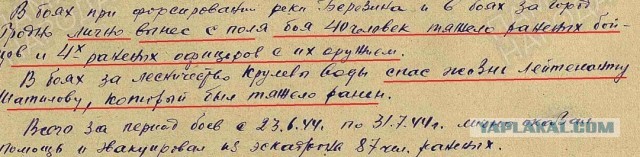 В боях при форсировании реки Березина и в боях за город
лично вынес с поля боя 40 человек тяжело раненых бой-
цов и 4х раненых офицеров с их оружием.
В боях за лесничество Крулевы Воды спас жизнь лейтенанту
Шатилову, который был тяжело ранен.
Всего за период боев с 23.6.44. по 31.7.44г. лично оказал
помощь и эвакуировал из эскадрона 87 чел. раненых.
YAPLAKAL.COM